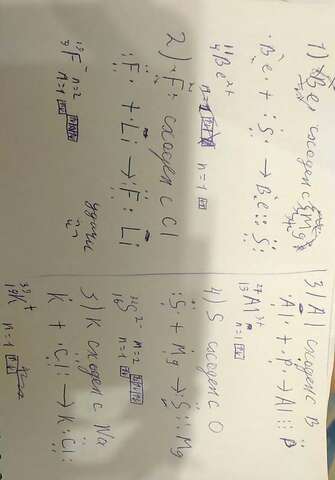 1) Be сходен с Mg
·Be· + :S: → Be::S:
₄¹¹Be²⁺ n=1
2) ·F: сходен с Cl
:F· + ·Li → :F:Li
₉¹⁹F⁻ n=2
n=1
3) Al сходен с B
·Al· + ·P· → Al:::P
₁₃²⁷Al³⁺
n=1
4) S сходен с O
:S: + Mg → :S::Mg
₁₆³²S²⁻ n=2
n=1
5) K сходен с Na
K + ·Cl: → K:Cl:
₁₉³⁹K⁺
n=1